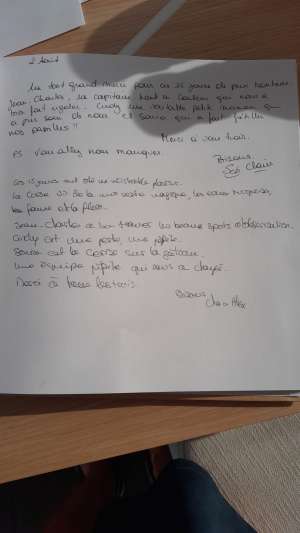 2 Août
Un tout grand merci pour ces 15 jours de pur bonheur
Jean-Charles, le capitaine haut en couleur qui nous a
fait rigoler. Cindy une véritable petite maman qui
a pris soin de nous et Soura qui a fait
nos papilles"
Merci à vous trois.
PS vous allez nous manquer.
Bisous
Claire
Ces 15 jours ont été un véritable plaisir.
La Corse de la mer reste magique, les eaux turquoises,
la faune et la flore.
Jean-Charles a su trouver les beaux spots d'observation.
Cindy est une perle, une pépite.
Soura est la cerise sur le gâteau.
Une équipe pépite qui nous a choyé.
Merci à tous les trois.
Bisous
Alex